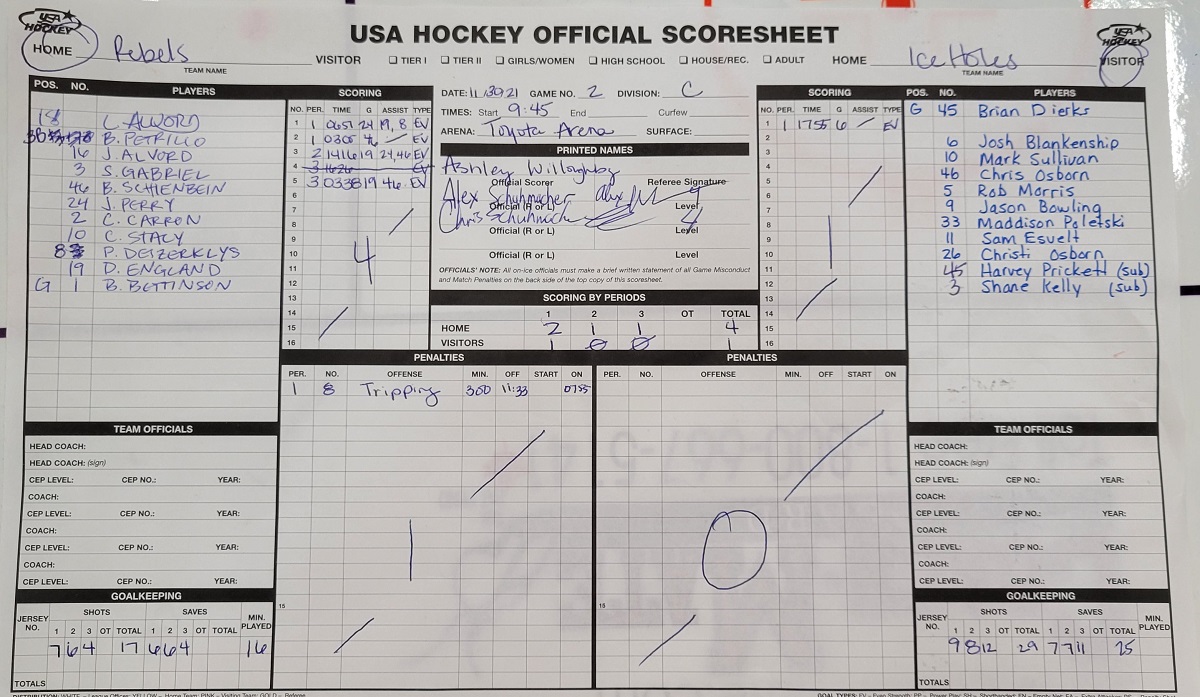 USA HOCKEY
USA HOCKEY OFFICIAL SCORESHEET
USA HOCKEY
HOME Rebels VISITOR ☐ TIER I ☐ TIER II ☐ GIRLS/WOMEN ☐ HIGH SCHOOL ☐ HOUSE/REC. ☐ ADULT HOME Ice Holes VISITOR
TEAM NAME TEAM NAME
POS. NO. PLAYERS
18 L. ALVORD
B. PETRILLO
16 J. ALVORD
3 S. GABRIEL
46 B. SCHIENBEIN
24 J. PERRY
2 C. CARRON
10 C. STACY
8 P. DEIZERKLYS
19 D. ENGLAND
G 1 B. BETTINSON
SCORING
NO. PER. TIME G ASSIST TYPE
1 1 0657 24 19, 8 EV
2 1 0305 46 EV
3 2 1416 19 24,46 EV
4 3 1626 EV
5 3 0338 19 46 EV
6
7
8
9
10
11
12
13
14
15
16
4
DATE: 11/30/21 GAME NO. 2 DIVISION: C
TIMES: Start 9:45 End Curfew
ARENA: Toyota Arena SURFACE:
PRINTED NAMES
Ashley Willoughby
Official Scorer Referee Signature
Alex Schuhmacher
Official (R or L) Level
Chris Schuhmach 4
Official (R or L) Level
Official (R or L) Level
OFFICIALS' NOTE: All on-ice officials must make a brief written statement of all Game Misconduct
and Match Penalties on the back side of the top copy of this scoresheet.
SCORING BY PERIODS
1 2 3 OT TOTAL
HOME 2 1 1 4
VISITORS 1 0 0 1
SCORING
NO. PER. TIME G ASSIST TYPE
1 1 1755 6 EV
2
3
4
5
6
7
8
9
10
11
12
13
14
15
16
1
POS. NO. PLAYERS
G 45 Brian Dierks
6 Josh Blankenship
10 Mark Sullivan
46 Chris Osborn
5 Rob Morris
9 Jason Bowling
33 Maddison Poletski
11 Sam Esvelt
26 Christi Osborn
45 Harvey Prickett (sub)
3 Shane Kelly (sub)
PENALTIES
PER. NO. OFFENSE MIN. OFF START ON
1 8 Tripping 300 11:33 0755
1
15
PENALTIES
PER. NO. OFFENSE MIN. OFF START ON
0
15
TEAM OFFICIALS
HEAD COACH:
HEAD COACH: (sign)
CEP LEVEL: CEP NO.: YEAR:
COACH:
CEP LEVEL: CEP NO.: YEAR:
COACH:
CEP LEVEL: CEP NO.: YEAR:
COACH:
CEP LEVEL: CEP NO.: YEAR:
GOALKEEPING
JERSEY NO. SHOTS SAVES MIN. PLAYED
1 2 3 OT TOTAL 1 2 3 OT TOTAL
7 6 4 17 6 6 4 16
TOTALS
TEAM OFFICIALS
HEAD COACH:
HEAD COACH: (sign)
CEP LEVEL: CEP NO.: YEAR:
COACH:
CEP LEVEL: CEP NO.: YEAR:
COACH:
CEP LEVEL: CEP NO.: YEAR:
COACH:
CEP LEVEL: CEP NO.: YEAR:
GOALKEEPING
JERSEY NO. SHOTS SAVES MIN. PLAYED
1 2 3 OT TOTAL 1 2 3 OT TOTAL
9 8 12 29 7 7 11 25
TOTALS